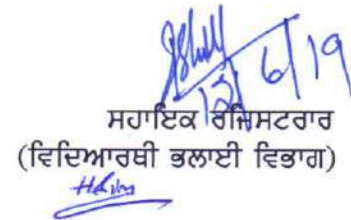 12/6/19
ਸਹਾਇਕ ਰਜਿਸਟਰਾਰ
(ਵਿਦਿਆਰਥੀ ਭਲਾਈ ਵਿਭਾਗ)